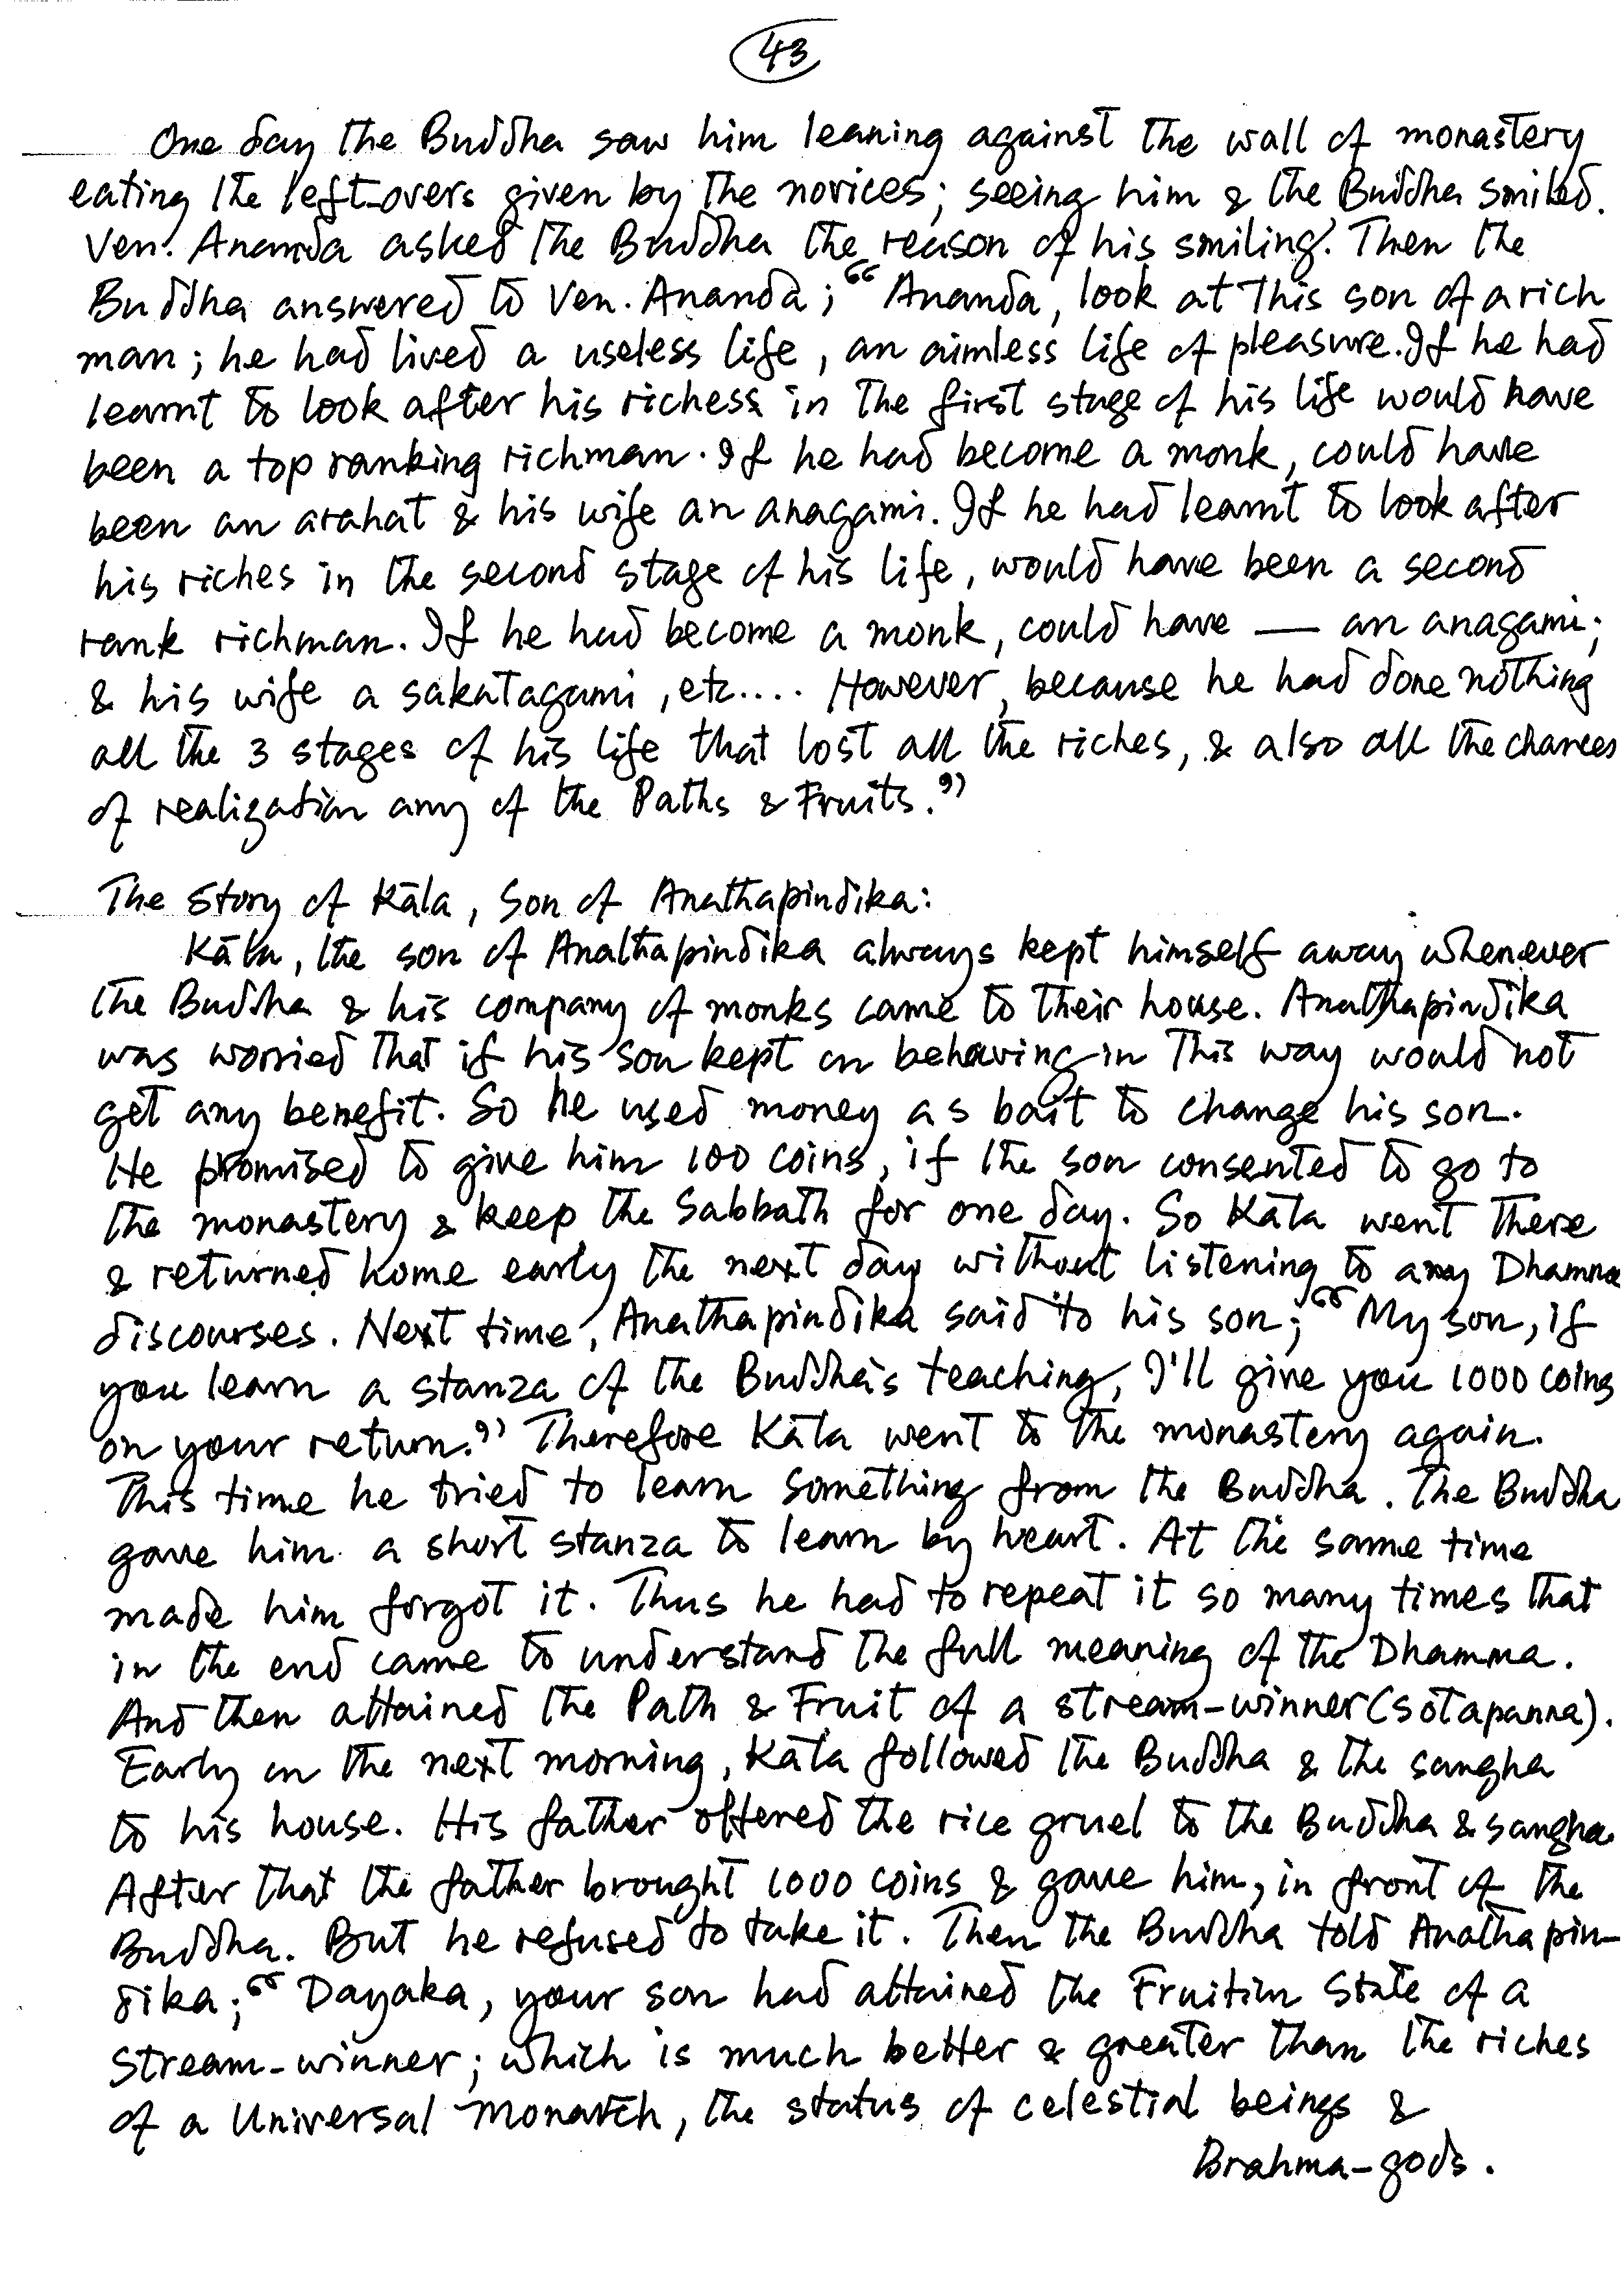 43
One day the Buddha saw him leaning against the wall of monastery
eating the left-overs given by the novices; seeing him & the Buddha smiled.
Ven. Ananda asked the Buddha the reason of his smiling. Then the
Buddha answered to Ven. Ananda; "Ananda, look at this son of a rich
man; he had lived a useless life, an aimless life of pleasure. If he had
learnt to look after his richess in the first stage of his life would have
been a top ranking richman. If he had become a monk, could have
been an arahat & his wife an anagami. If he had learnt to look after
his riches in the second stage of his life, would have been a second
rank richman. If he had become a monk, could have — an anagami;
& his wife a sakatagami, etc.... However, because he had done nothing
all the 3 stages of his life that lost all the riches, & also all the chances
of realization any of the Paths & Fruits."
The Story of Kāla, Son of Anathapindika:
Kāla, the son of Anathapindika always kept himself away whenever
the Buddha & his company of monks came to their house. Anathapindika
was worried that if his son kept on behaving in this way would not
get any benefit. So he used money as bait to change his son.
He promised to give him 100 coins, if the son consented to go to
the monastery & keep the Sabbath for one day. So Kāla went there
& returned home early the next day without listening to any Dhamma
discourses. Next time, Anathapindika said to his son; "My son, if
you learn a stanza of the Buddha's teaching, I'll give you 1000 coins
on your return." Therefore Kāla went to the monastery again.
This time he tried to learn something from the Buddha. The Buddha
gave him a short stanza to learn by heart. At the same time
made him forgot it. Thus he had to repeat it so many times that
in the end came to understand the full meaning of the Dhamma.
And then attained the Path & Fruit of a stream-winner (sotapanna).
Early on the next morning, Kāla followed the Buddha & the sangha
to his house. His father offered the rice gruel to the Buddha & sangha.
After that the father brought 1000 coins & gave him, in front of the
Buddha. But he refused to take it. Then the Buddha told Anathapin-
dika; "Dayaka, your son had attained the Fruition State of a
Stream-winner; which is much better & greater than the riches
of a Universal Monarch, the status of celestial beings &
Brahma-gods.